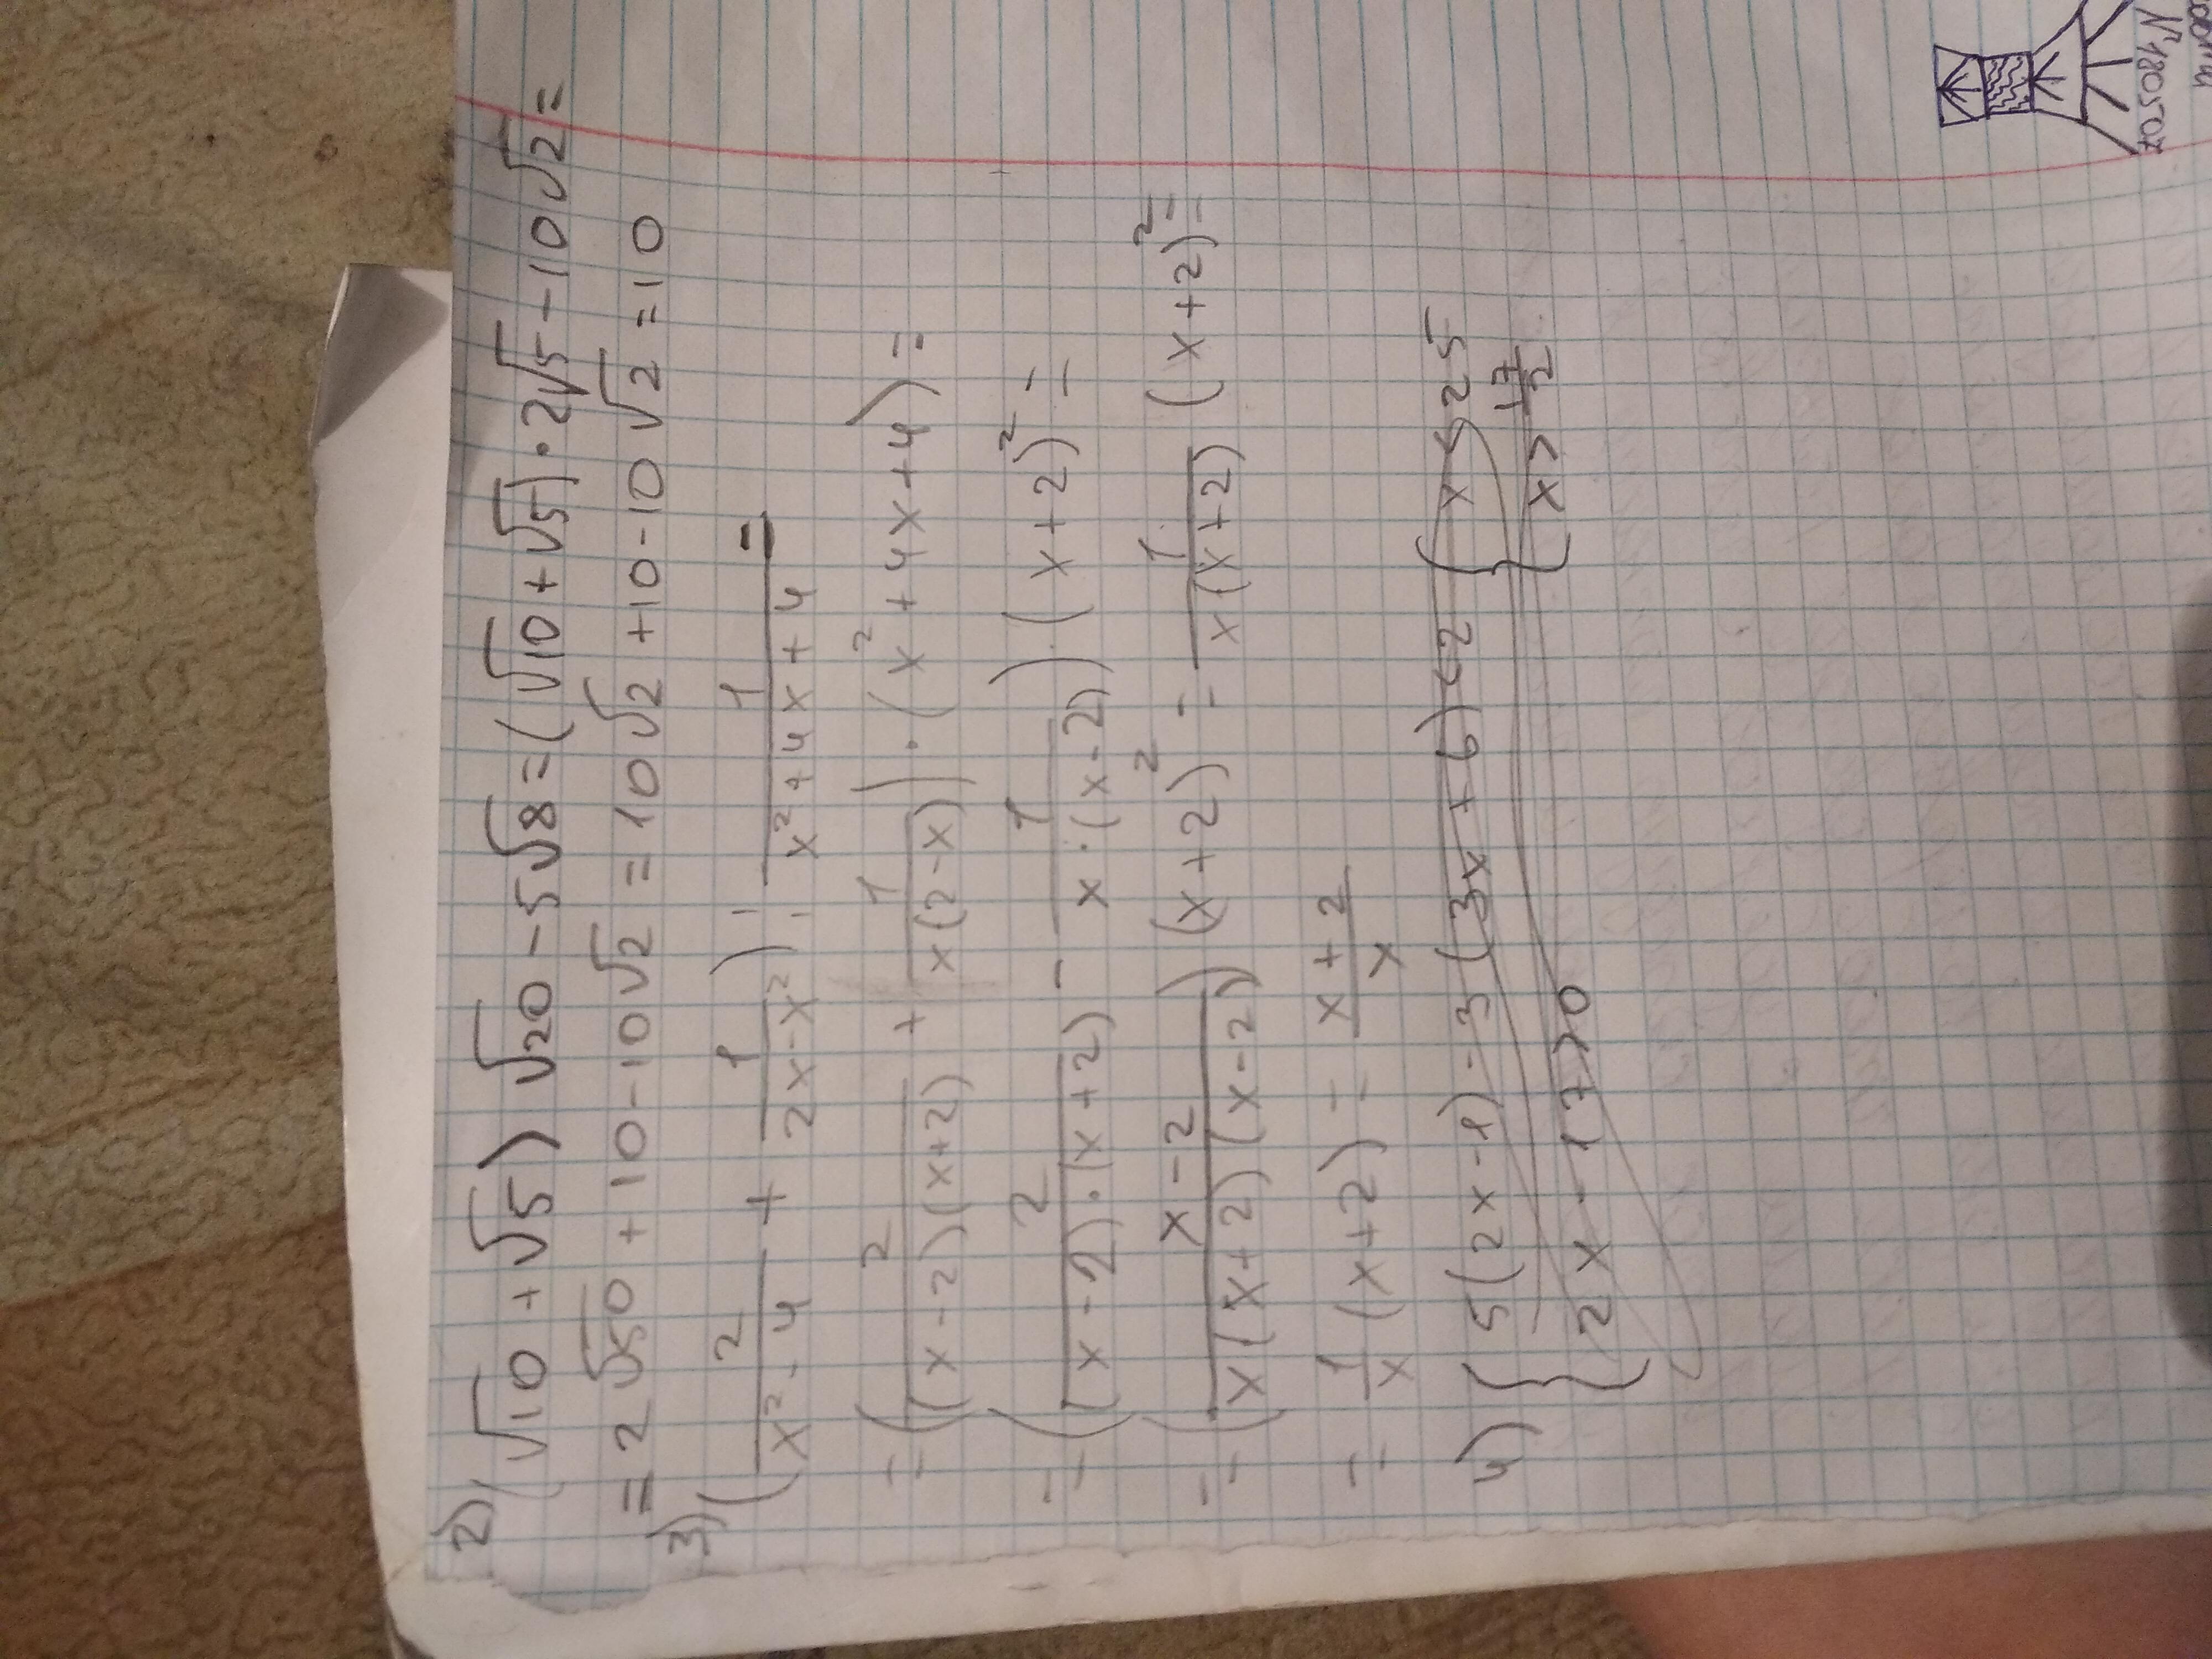 2) (√10 + √5) √20 - 5√8 = (√10 + √5) · 2√5 - 10√2 =
= 2√50 + 10 - 10√2 = 10√2 + 10 - 10√2 = 10
3) (2/(x² - 4) + 1/(2x - x²)) : 1/(x² + 4x + 4) =
= (2/((x - 2)(x + 2)) + 1/(x(2 - x))) · (x² + 4x + 4) =
= (2/((x - 2) · (x + 2)) - 1/(x · (x - 2))) · (x + 2)² =
= ((x - 2)/(x(x + 2)(x - 2))) (x + 2)² = 1/(x(x + 2)) (x + 2)² =
= 1/x (x + 2) = (x + 2)/x
4) { 5(2x - 1) - 3(3x + 6) < 2 { x < 25
{ 2x - 17 > 0 { x > 17/2
№1805207